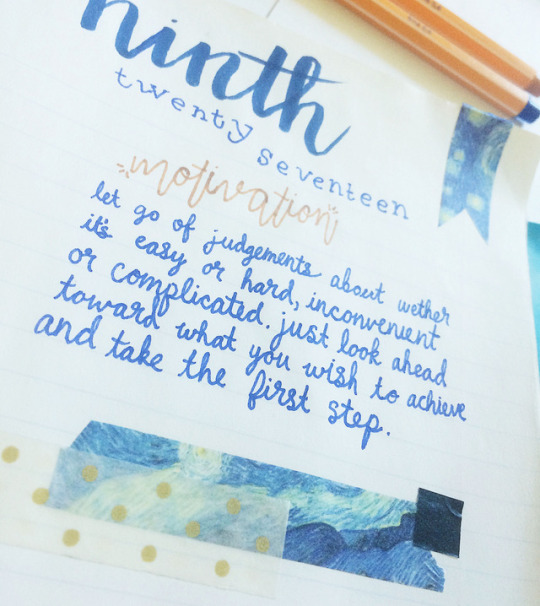 ninth
twenty seventeen
motivation
let go of judgements about wether
it's easy or hard, inconvenient
or complicated. just look ahead
toward what you wish to achieve
and take the first step.